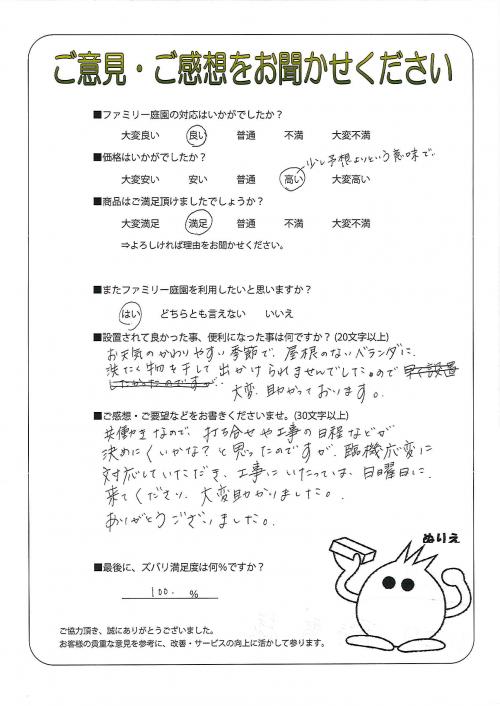 ご意見・ご感想をお聞かせください
■ファミリー庭園の対応はいかがでしたか？
大変良い 良い 普通 不満 大変不満
■価格はいかがでしたか？
少し予想よりという意味で
大変安い 安い 普通 高い 大変高い
■商品はご満足頂けましたでしょうか？
大変満足 満足 普通 不満 大変不満
⇒よろしければ理由をお聞かせください。
■またファミリー庭園を利用したいと思いますか？
はい どちらとも言えない いいえ
■設置されて良かった事、便利になった事は何ですか？(20文字以上)
お天気のかわりやすい季節で、屋根のないベランダに
洗たく物を干して出かけられませんでした。ので 早く設置
したかったのですが
大変、助かっております。
■ご感想・ご要望などをお書きくださいませ。(30文字以上)
共働きなので、打ち合せや工事の日程などが
決めにくいかな？と思ったのですが、臨機応変に
対応していただき、工事にいたっては、日曜日に
来てくださり、大変助かりました。
ありがとうございました。
ぬりえ
■最後に、ズバリ満足度は何％ですか？
100. ％
ご協力頂き、誠にありがとうございました。
お客様の貴重な意見を参考に、改善・サービスの向上に活かして参ります。